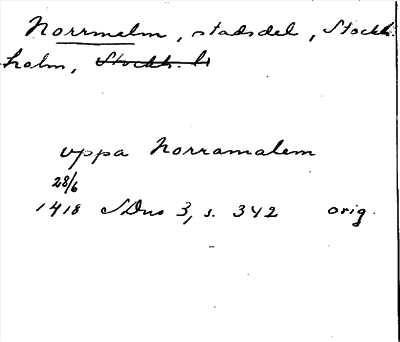 Norrmalm, stadsdel, Stock-
holm, Stockh. l
uppa Norramalem
28/6
1418 SDns 3, s. 342 orig.